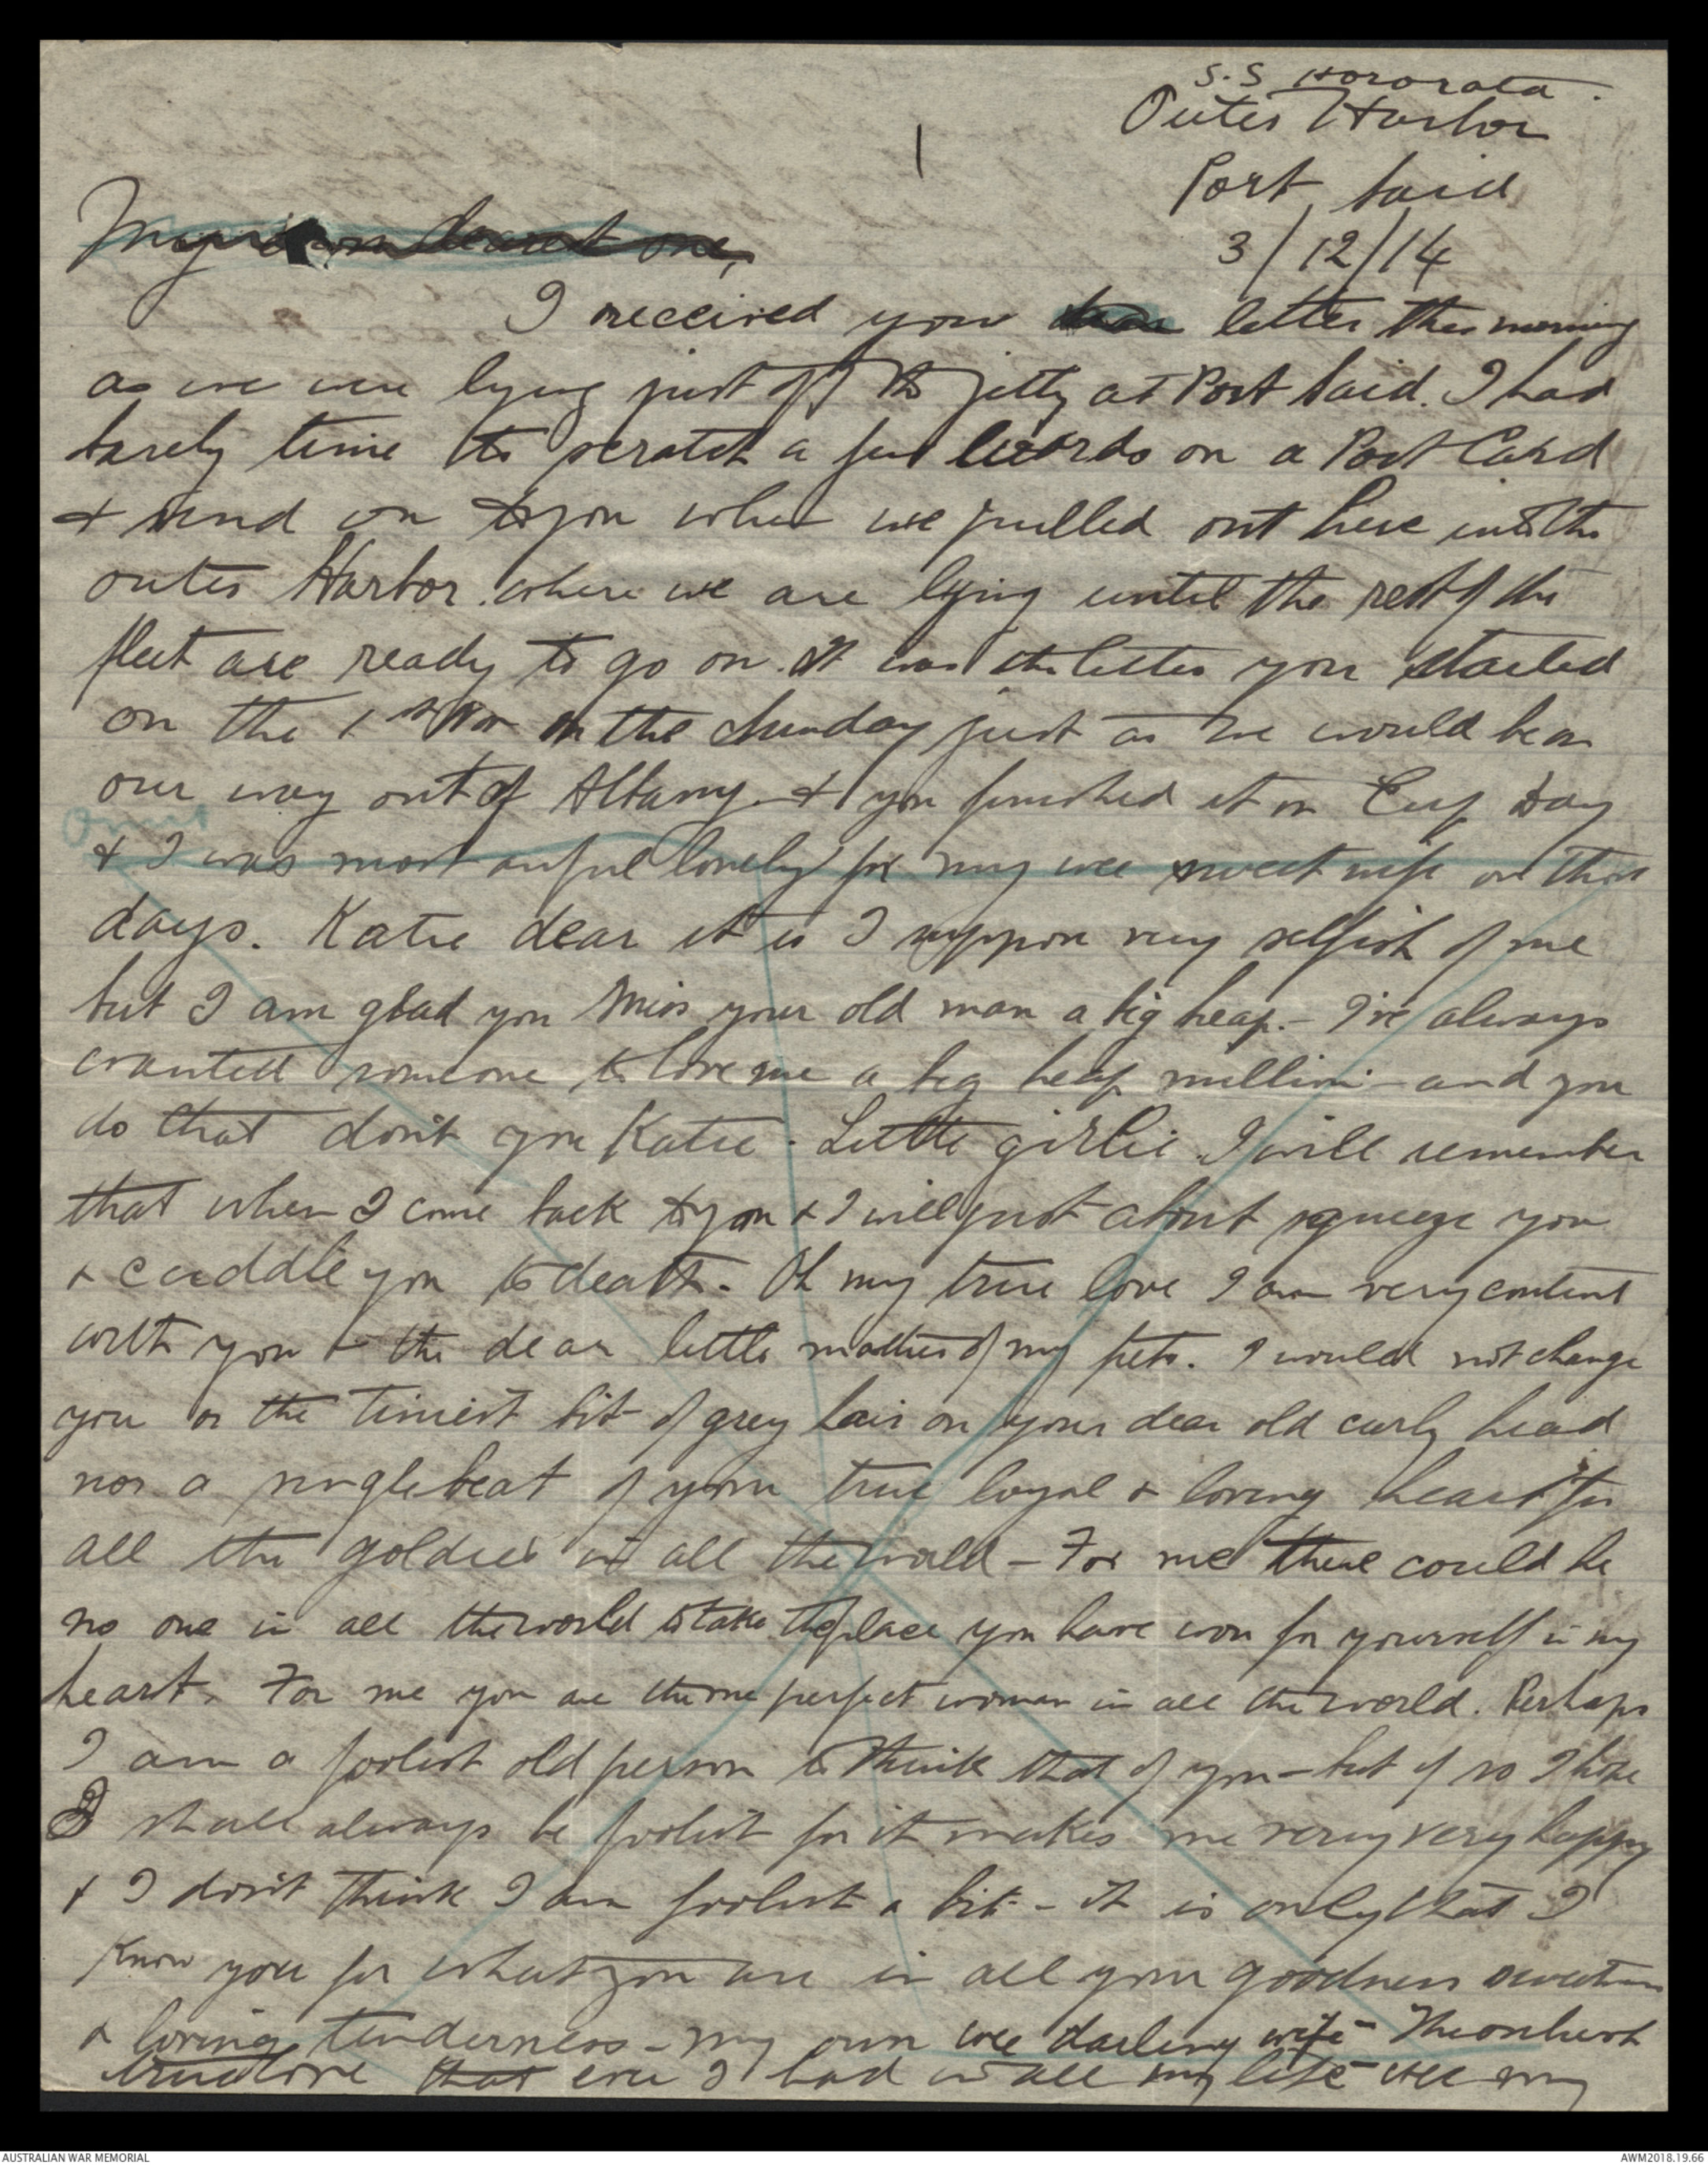 S.S Hororata.
Outer Harbor
1
Port Said
3/12/14
My own dearest one,
I received your dear letter this morning
as we were lying just off the jetty at Port Said. I had
barely time to scratch a few words on a Post Card
& send on to you when we pulled out here into the
outer Harbor where we are lying until the rest of the
fleet are ready to go on. It was the letter you started
on the 1st Nov on the Sunday just as we would be on
our way out of Albany & you finished it on Cup Day
Omit
& I was most awful lonely for my wee sweet wife on those
days. Katie dear it is I suppose very selfish of me
but I am glad you miss your old man a big heap. - I've always
wanted someone to love me a big heap million - and you
do that don't you Katie - Little girlie. I will remember
that when I come back to you & I will just about squeeze you
& cuddle you to death. Oh my true love I am very content
with you & the dear little mother of my pets. I would not change
you or the tiniest bit of grey hair on your dear old curly head
nor a single beat of your true loyal & loving heart for
all the goldies in all the world - For me there could be
no one in all the world to take the place you have won for yourself in my
heart. For me you are the one perfect woman in all the world. Perhaps
I am a foolish old person to think that of you - but if so I hope
I shall always be foolish for it makes me very very happy
& I don't think I am foolish a bit - it is only that I
know you for what you are in all your goodness sweetness
& loving tenderness - my own wee darling wife - The only
true love that ever I had in all my life wee my
AUSTRALIAN WAR MEMORIAL
AWM2018.19.66